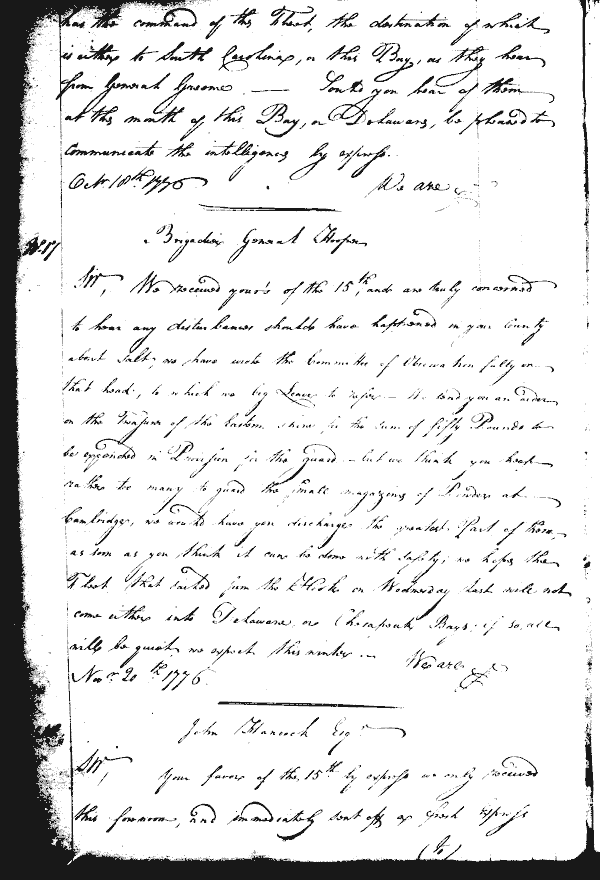 has the command of this Fleet, the destination of which
is either to South Carolina, or this Bay, as they hear
from General Greene. — Should you hear of them
at the mouth of this Bay, or Delaware, be pleased to
communicate the intelligence by express.
18th 1776 We are &c
No. 17
Brigadier General Hooper
Sir, We received your's of the 15th, and are truly concerned
to hear any disturbances should have happened in your County
about Salt; we have wrote the Committee of Observation fully on
that head, to which we beg Leave to refer — We send you an order
on the Treasurer of the Eastern Shore for the sum of fifty Pounds to
be expended in Provision for the guard — but we think you keep
rather too many to guard the small magazine of Powder at
Cambridge, we would have you discharge the greatest Part of them,
as soon as you think it can be done with safety; we hope the
Fleet that sailed from the Hook on Wednesday last will not
come either into Delaware or Chesapeak Bays; if so, all
will be quiet we expect this winter. — We are &c
Novr. 20th 1776.
John Hancock Esqr.
Sir, your favor of the 15th by express we only received
this forenoon, and immediately sent off a fresh Express
(to)